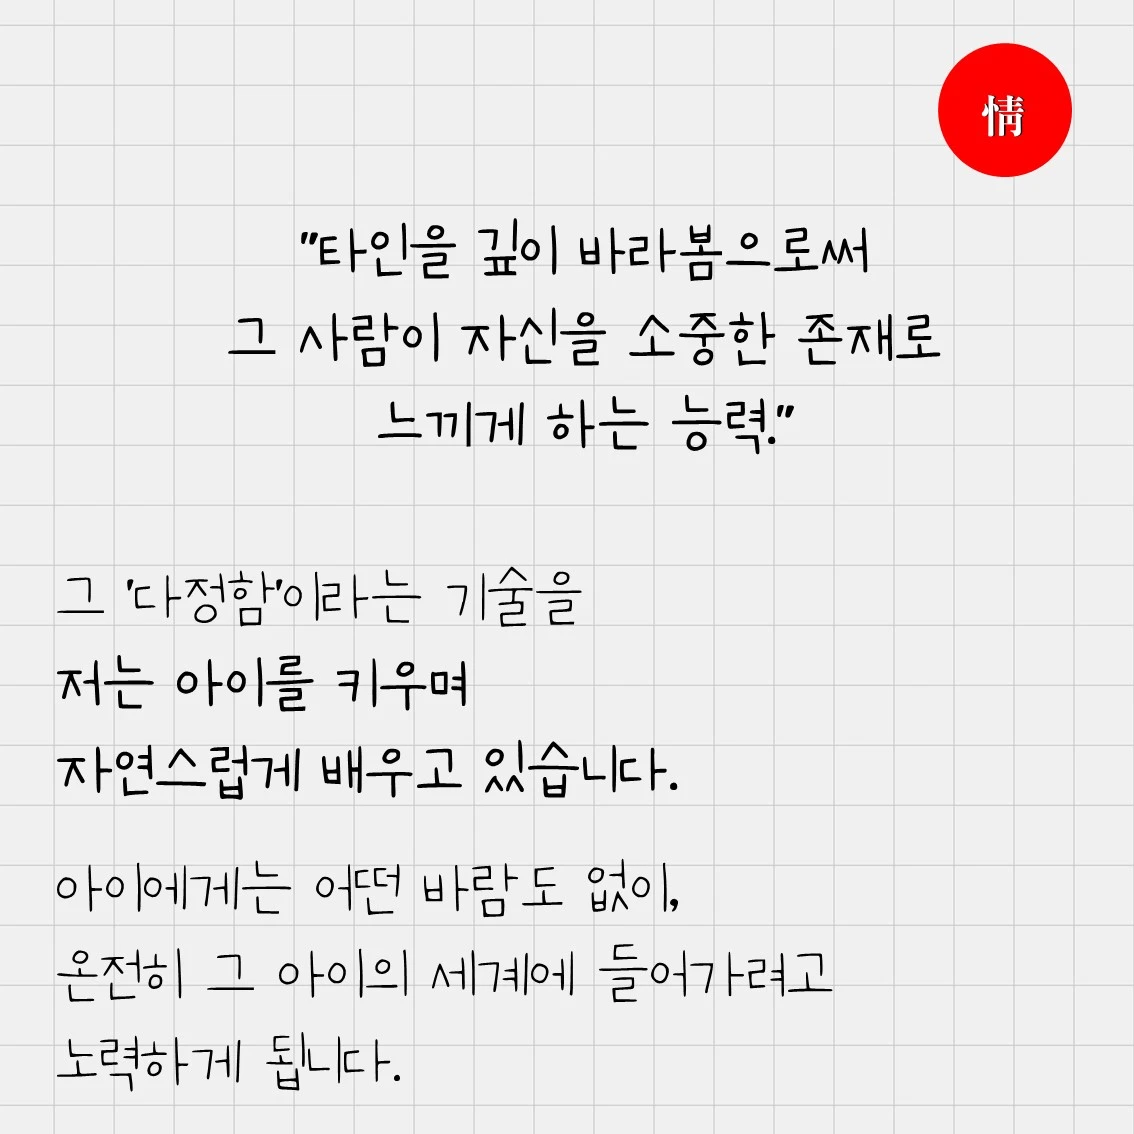 情
"타인을 깊이 바라봄으로써
그 사람이 자신을 소중한 존재로
느끼게 하는 능력."
그 '다정함'이라는 기술을
저는 아이를 키우며
자연스럽게 배우고 있습니다.
아이에게는 어떤 바람도 없이,
온전히 그 아이의 세계에 들어가려고
노력하게 됩니다.